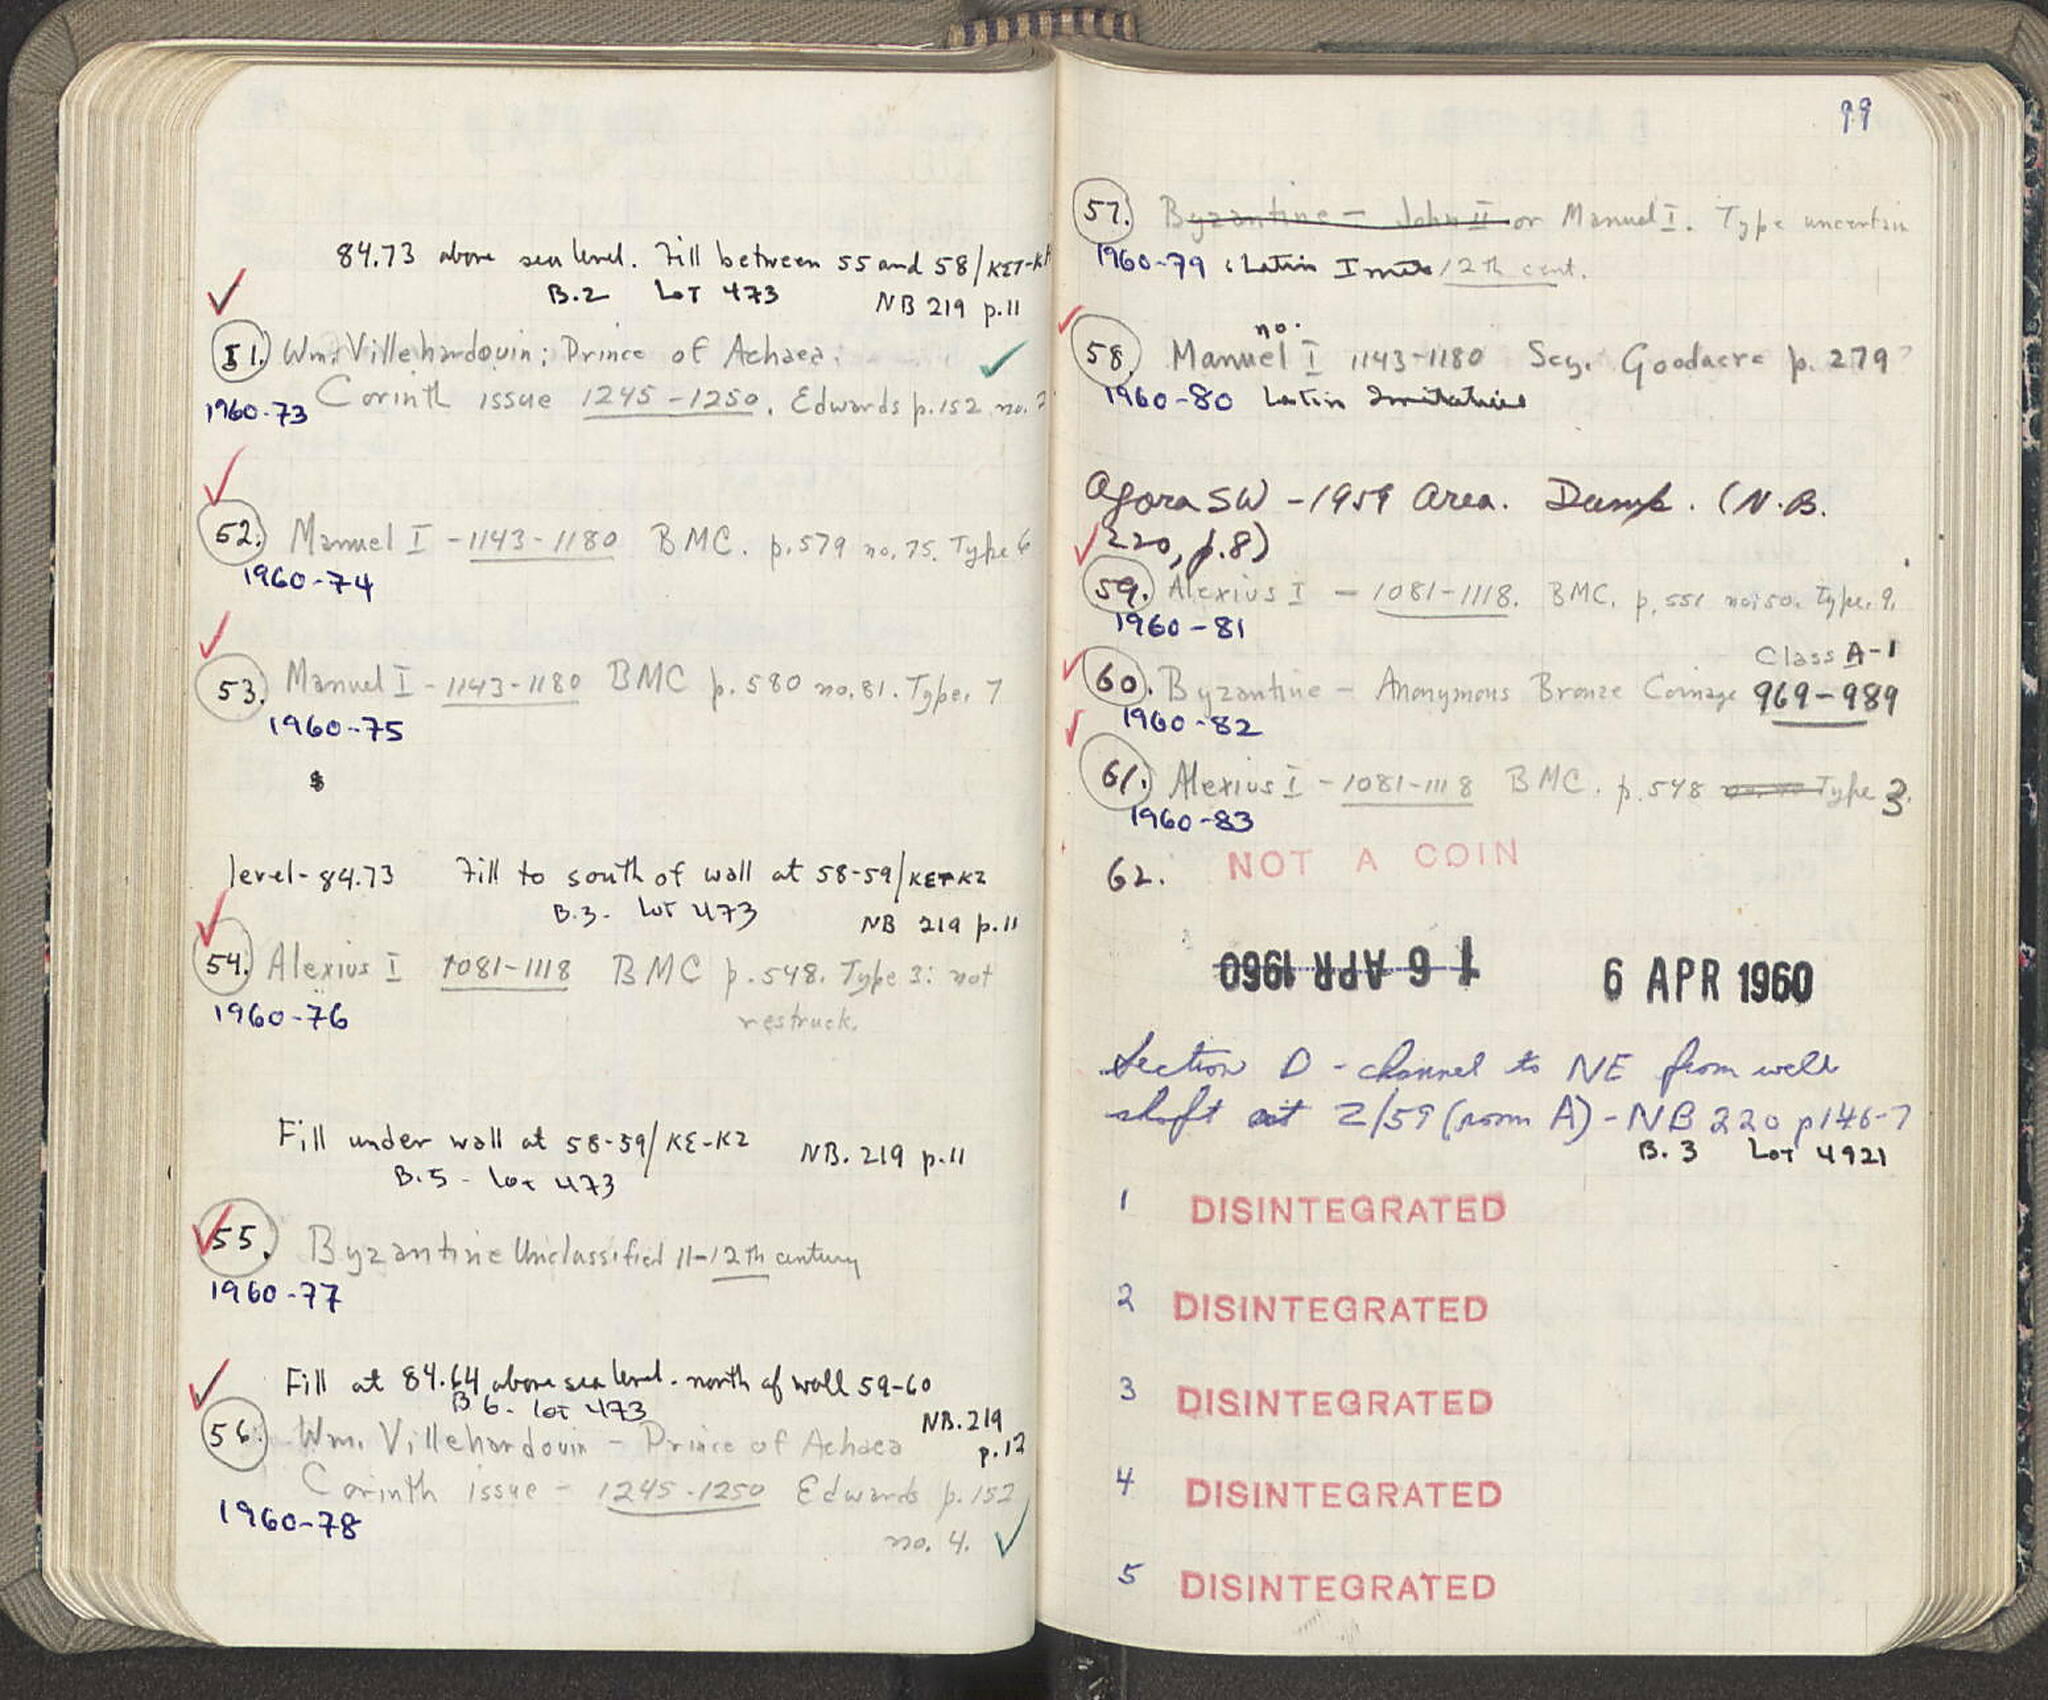 84.73 above sea level. Fill between 55 and 58/
B.2 Lot 473 NB 219 p.11
51. Wm. Villehardouin; Prince of Achaea.
Corinth issue 1245-1250. Edwards p.152 no.
1960-73
52. Manuel I - 1143-1180 BMC. p.579 no.75. Type 6
1960-74
53. Manuel I - 1143-1180 BMC p.580 no.81. Type. 7
1960-75
level-84.73 Fill to south of wall at 58-59/
B.3- Lot 473 NB 219 p.11
54. Alexius I 1081-1118 BMC p.548. Type 3: not
restruck.
1960-76
Fill under wall at 58-59/KE-KZ NB. 219 p.11
B.5 - Lot 473
55. Byzantine Unclassified 11-12th century
1960-77
Fill at 84.64 above sea level. north of wall 59-60
B 6- Lot 473 NB.219
p.12
56. Wm. Villehardouin - Prince of Achaea
Corinth issue - 1245-1250 Edwards p.152
no. 4.
1960-78
99
57. Byzantine - John II or Manuel I. Type uncertain
1960-79 Latin 12th cent.
no.
58. Manuel I 1143-1180 Scy. Goodacre p. 279
1960-80 Latin Imitative
Agora SW - 1959 Area. Dump. (N.B.
220, p.8)
59. Alexius I - 1081-1118. BMC. p.551 no.50. Type. 9.
1960-81
Class A-1
60. Byzantine - Anonymous Bronze Coinage 969-989
1960-82
61. Alexius I - 1081-1118 BMC. p.548 Type 3.
1960-83
62. NOT A COIN
1 6 APR 1960 6 APR 1960
Section D - channel to NE from well
shaft at Z/59 (room A) - NB 220 p146-7
B. 3 Lot 4921
1 DISINTEGRATED
2 DISINTEGRATED
3 DISINTEGRATED
4 DISINTEGRATED
5 DISINTEGRATED